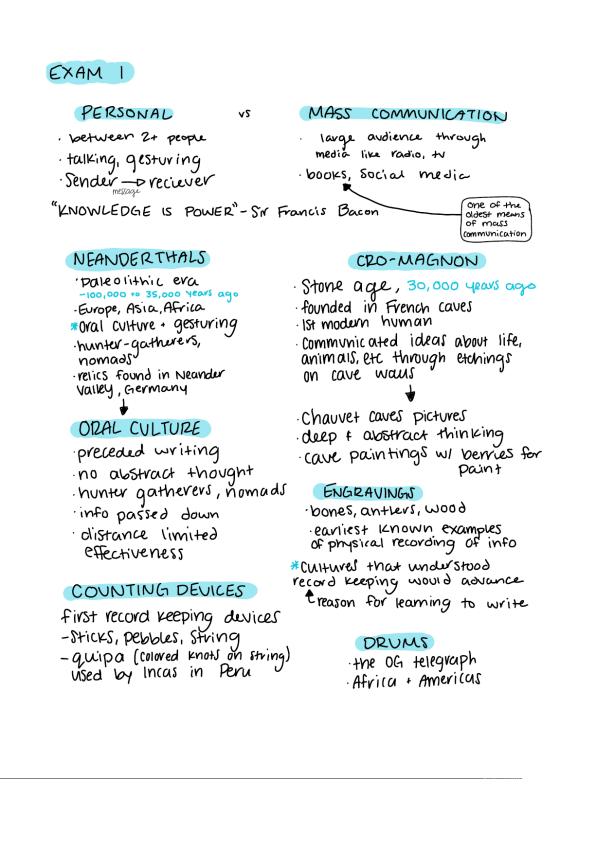 EXAM 1
PERSONAL vs MASS COMMUNICATION
· between 2+ people
· talking, gesturing
· Sender → reciever
message
· large audience through
media like radio, tv
· books, social media
one of the
oldest means
of mass
communication
"KNOWLEDGE IS POWER" - Sir Francis Bacon
NEANDERTHALS
· Paleolithic era
~100,000 to 35,000 years ago
· Europe, Asia, Africa
*Oral culture + gesturing
· hunter-gatherers,
nomads
· relics found in Neander
Valley, Germany
ORAL CULTURE
· preceded writing
· no abstract thought
· hunter gatherers, nomads
· info passed down
· distance limited
effectiveness
COUNTING DEVICES
first record keeping devices
- Sticks, pebbles, String
- quipa (colored knots on string)
used by Incas in Peru
CRO-MAGNON
· Stone age, 30,000 years ago
· founded in French caves
· 1st modern human
· Communicated ideas about life,
animals, etc through etchings
on cave walls
· Chauvet caves pictures
· deep + abstract thinking
· cave paintings w/ berries for
paint
ENGRAVINGS
· bones, antlers, wood
· earliest known examples
of physical recording of info
*Cultures that understood
record keeping would advance
reason for learning to write
DRUMS
· the OG telegraph
· Africa + Americas